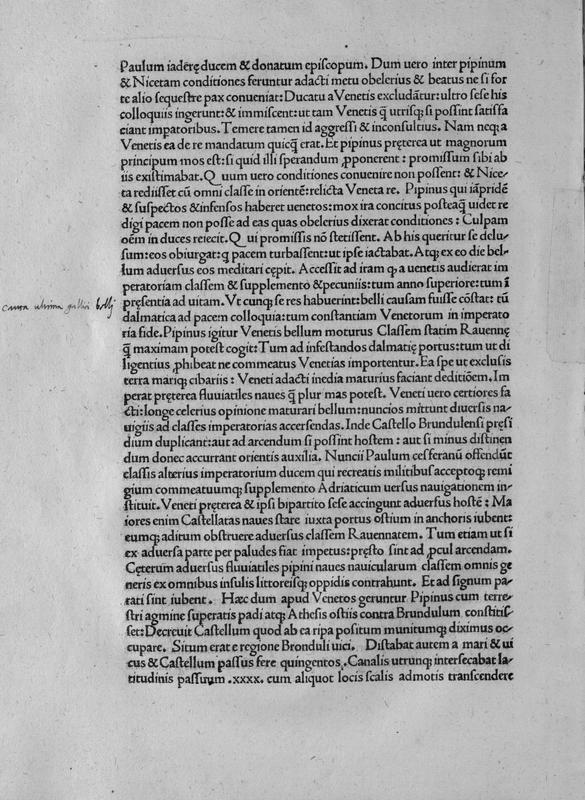 Paulum iaderę ducem & donatum episcopum. Dum uero inter pipinum
& Nicetam conditiones feruntur adacti metu obelerius & beatus ne si for
te alio sequestre pax conueniat: Ducatu a Venetis excludātur: ultro sese his
colloquiis ingerunt: & immiscent: ut tam Venetis q̄ utrisq; si possint satisfa
ciant impatoribus. Temere tamen id aggressi & inconsultius. Nam neq; a
Venetis ea de re mandatum quicq̄ erat. Et pipinus pręterea ut magnorum
principum mos est: si quid illi sperandum ꝓponerent: promissum sibi ab
iis existimabat. Q uum uero conditiones conuenire non possent: & Nice-
ta redisset cū omni classe in orientē: relicta Veneta re. Pipinus qui iāpridē
& suspectos & infensos haberet uenetos: mox ira concitus posteaq̄ uidet re
digi pacem non posse ad eas quas obelerius dixerat conditiones: Culpam
oēm in duces reiecit. Q ui promissis nō stetissent. Ab his queritur se delu-
sum: eos obiurgat: q pacem turbassent: ut ipse iactabat. Atq; ex eo die bel-
lum aduersus eos meditari cępit. Accessit ad iram q a uenetis audierat im
peratoriam classem & supplemento & pecuniis: tum anno superiore: tum ī
pręsentia ad uitam. Vt cunq; se res habuerint: belli causam fuisse cōstat: tū
dalmatica ad pacem colloquia: tum constantiam Venetorum in imperato
ria fide. Pipinus igitur Venetis bellum moturus Classem statim Rauennę
q̄ maximam potest cogit: Tum ad infestandos dalmatię portus: tum ut di
ligentius ꝓhibeat ne commeatus Venetias importentur. Ea spe ut exclusis
terra mariq; cibariis: Veneti adacti inedia maturius faciant deditiōem. Im
perat pręterea fluuiatiles naues q̄ plur mas potest. Veneti uero certiores fa
cti: longe celerius opinione maturari bellum: nuncios mittunt diuersis na-
uigiis ad classes imperatorias accersendas. Inde Castello Brundulensi pręsi
dium duplicant: aut ad arcendum si possint hostem: aut si minus distinen
dum donec accurrant orientis auxilia. Nuncii Paulum cesseranū offendūt
classis alterius imperatorium ducem qui recreatis militibus acceptoq; remi
gium commeatuumq; supplemento Adriaticum uersus nauigationem in-
stituit. Veneti pręterea & ipsi bipartito sese accingunt aduersus hostē: Ma
iores enim Castellatas naues stare iuxta portus ostium in anchoris iubent:
eumq; aditum obstruere aduersus classem Rauennatem. Tum etiam ut si
ex aduersa parte per paludes fiat impetus: pręsto sint ad ꝓcul arcendam.
Cęterum aduersus fluuiatiles pipini naues nauicularum classem omnis ge
neris ex omnibus insulis littoreisq; oppidis contrahunt. Et ad signum pa-
rati sint iubent. Hæc dum apud Venetos geruntur Pipinus cum terre-
stri agmine superatis padi atq; Athesis ostiis contra Brundulum constitis-
set: Decreuit Castellum quod ab ea ripa positum munitumq; diximus oc-
cupare. Situm erat e regione Bronduli uici. Distabat autem a mari & ui
cus & Castellum passus fere quingentos. Canalis utrunq; intersecabat la-
titudinis passuum .xxxx. cum aliquot locis scalis admotis transcendere
causa ultima gallici belli